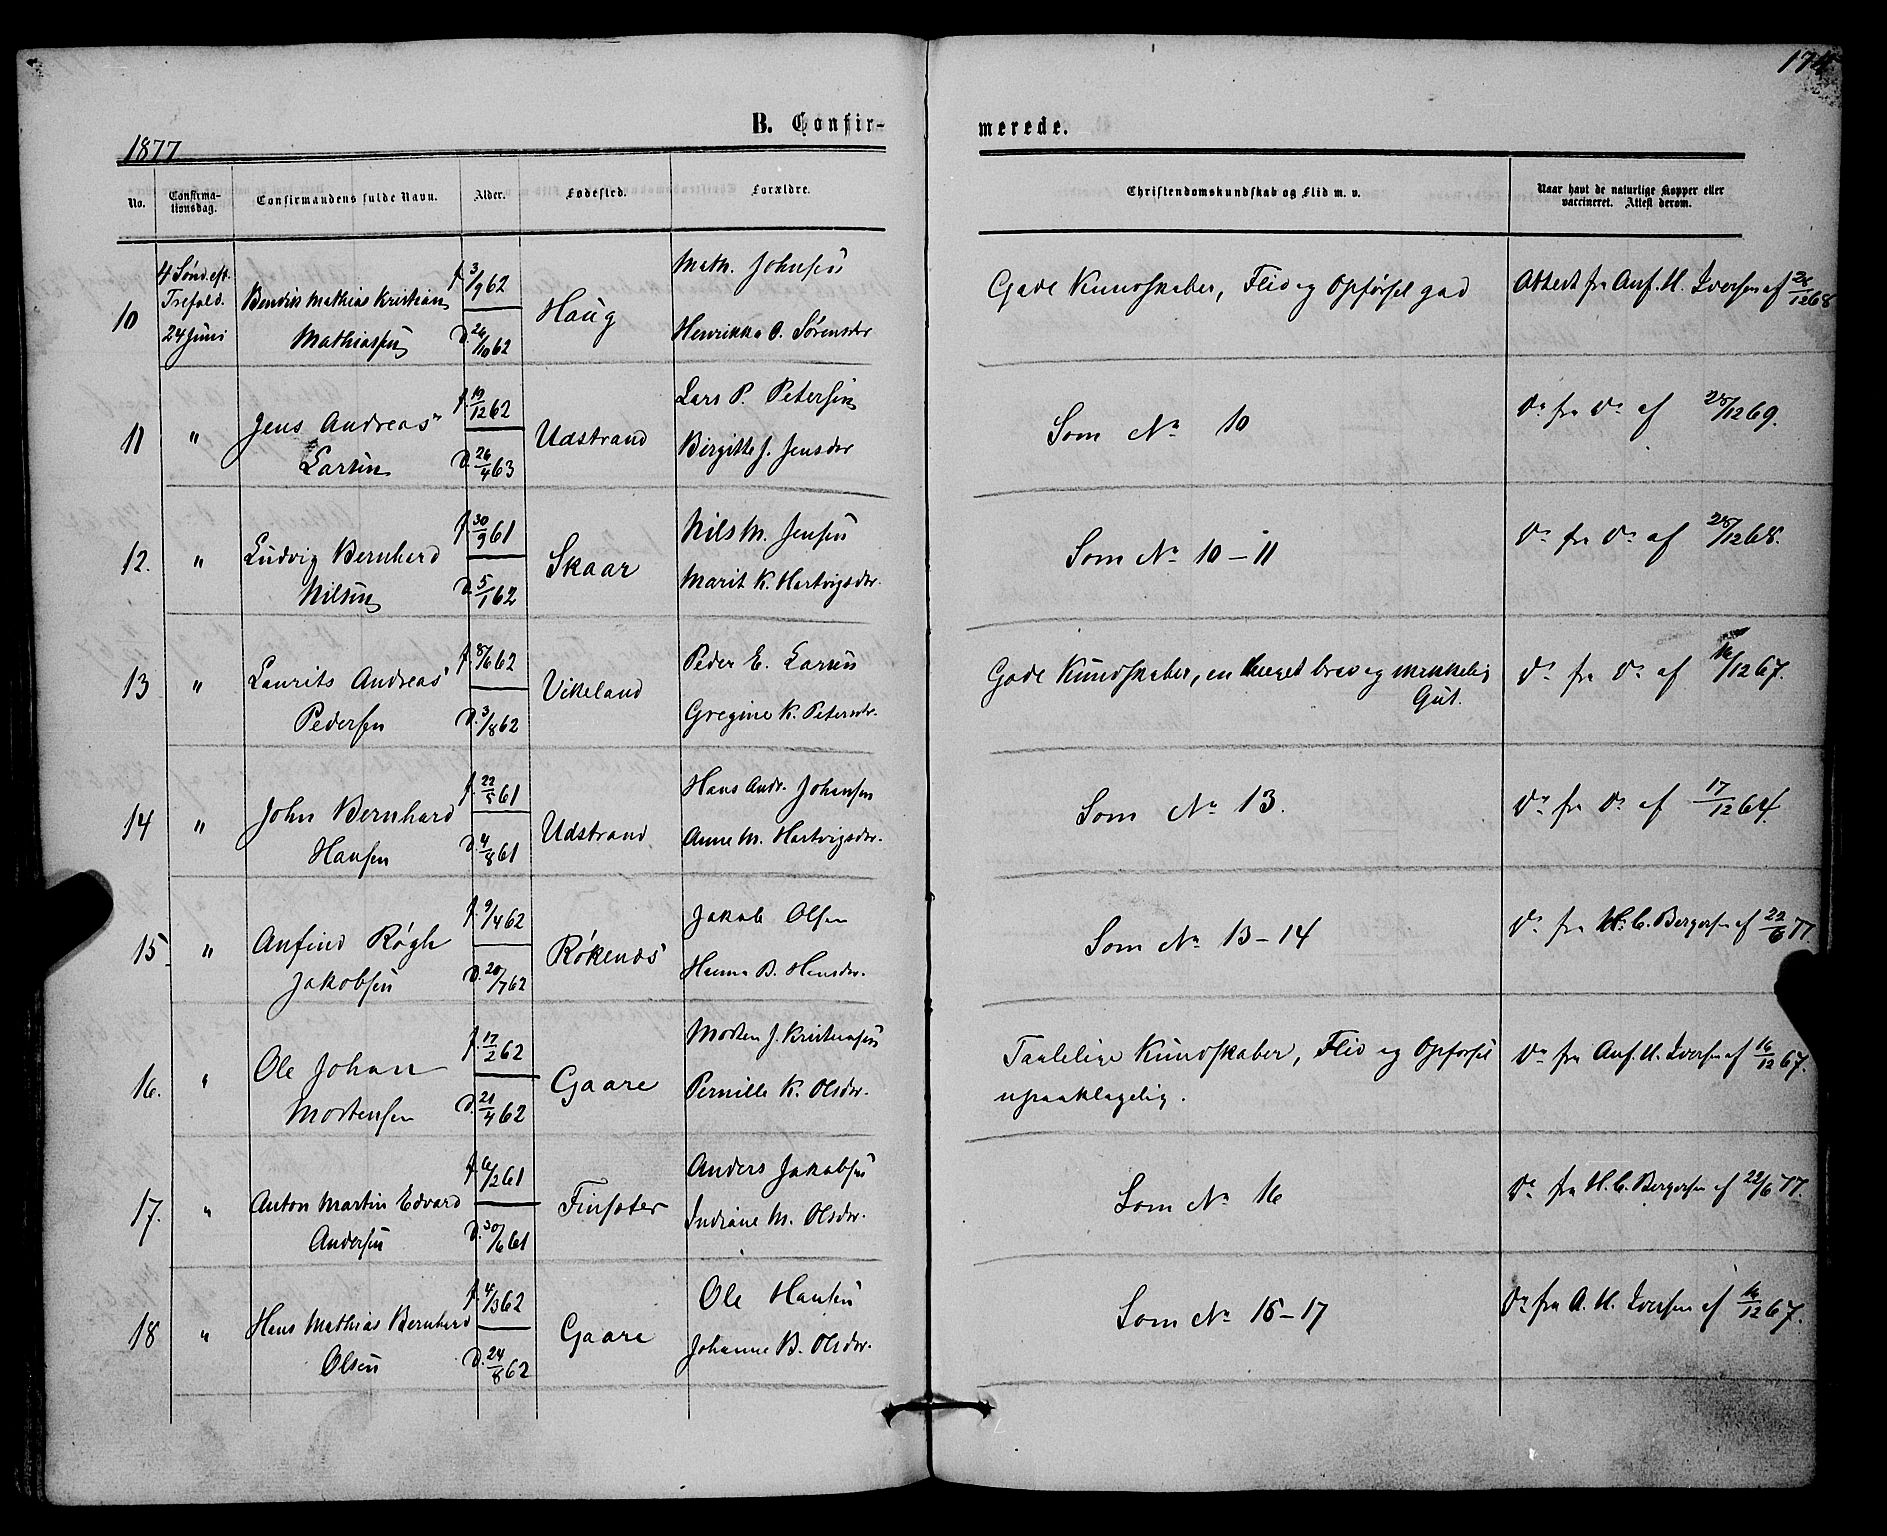 174
B. Confir-
merede.
1877
No.
Confirma-
tionsdag.
Confirmandens fulde Navn.
Alder.
Fødested.
Forældre.
Christendomskundskab og Flid m. v.
Naar havt de naturlige Kopper eller
vaccineret. Attest derom.
10
4 Sønd. eft.
Trefold.
24 Juni
Bendik Mathias Kristian
Mathiassen
f. 3/9 62
D. 26/10 62
Haug
Math. Johnsen
Henrikka O. Sørensdr
Gode Kundskaber, Flid og Opførsel god
Attest fra Anf. H. Iversen af 28/12 68
11
"
Jens Andreas
Larsen
f. 19/12 62
D. 26/4 63
Udstrand
Lars P. Petersen
Birgitte J. Jensdr
Som No 10
Do fra Do af 28/12 69.
12.
"
Ludvig Bernhard
Nilsen
f. 30/9 61
D. 5/1 62
Skaar
Nils M. Jensen
Marit K. Hartvigsdr.
Som No 10-11
Do fra Do af 28/12 68.
13
"
Laurits Andreas
Pedersen
f. 8/6 62
D. 3/8 62
Vikeland
Peder E. Larsen
Gregine K. Petersdr.
Gode Kundskaber, en meget brav og
Gut.
Do fra Do af 16/12 67.
14
"
John Bernhard
Hansen
f. 22/5 61
D. 4/8 61
Udstrand
Hans Andr. Johansen
Anne M. Hartvigsdr.
Som No 13.
Do fra Do af 17/12 64.
15
"
Anfind Røgh
Jakobsen
f. 9/4 62
D. 20/7 62
Røkenæs
Jakob Olsen
Hanna B. Hansdr.
Som No 13-14
Do fra H. C. Bergersen af 22/6 77.
16.
"
Ole Johan
Mortensen
f. 17/2 62
D. 21/4 62
Gaare
Morten J. Kristensen
Pernille K. Olsdr.
Taalelige Kundskaber, Flid og Opførsel
upaaklagelig.
Do fra Anf. H. Iversen af 16/12 67.
17.
"
Anton Martin Edvard
Andersen
f. 6/2 61
D. 30/6 61
Finsæter
Anders Jakobsen
Indiane M. Olsdr.
Som No 16
Do fra H. C. Bergersen af 22/6 77.
18
"
Hans Mathias Bernhard
Olsen
f. 4/3 62
D. 24/8 62
Gaare
Ole Hansen
Johanne B. Olsdr.
Som No 16-17
Do fra A. H. Iversen af 16/12 67.